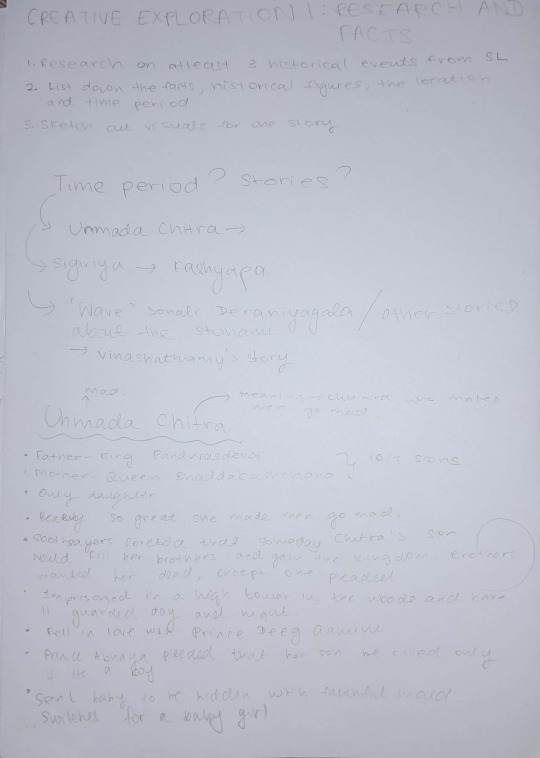 CREATIVE EXPLORATION 1: RESEARCH AND
FACTS
1. Research on atleast 3 historical events from SL
2. List down the facts, historical figures, the location
and time period
3. Sketch out visuals for one story
Time period? Stories?
Unmada Chitra →
Sigiriya → Kashyapa
"Wave" Sonali Deraniyagala / other stories
about the tsunami
→ Vinashathamy's story
Mad
→ Meaning - Chithra who makes
men go mad
Unmada Chitra
• Father - King
• Mother - Queen
sons
• Only daughter
• Beauty so great, she made men go mad.
• Soothsayers foretold that someday Chitra's son
would kill her brothers and gain the kingdom. Brothers
wanted her dead, except one pleaded
• Imprisoned in a high tower in the woods and have
it guarded day and night.
• Fell in love with Prince
• Prince Abhaya pleaded that her son be killed only
if its a boy
• Sent baby to be hidden with faithful maid
switches for a baby girl